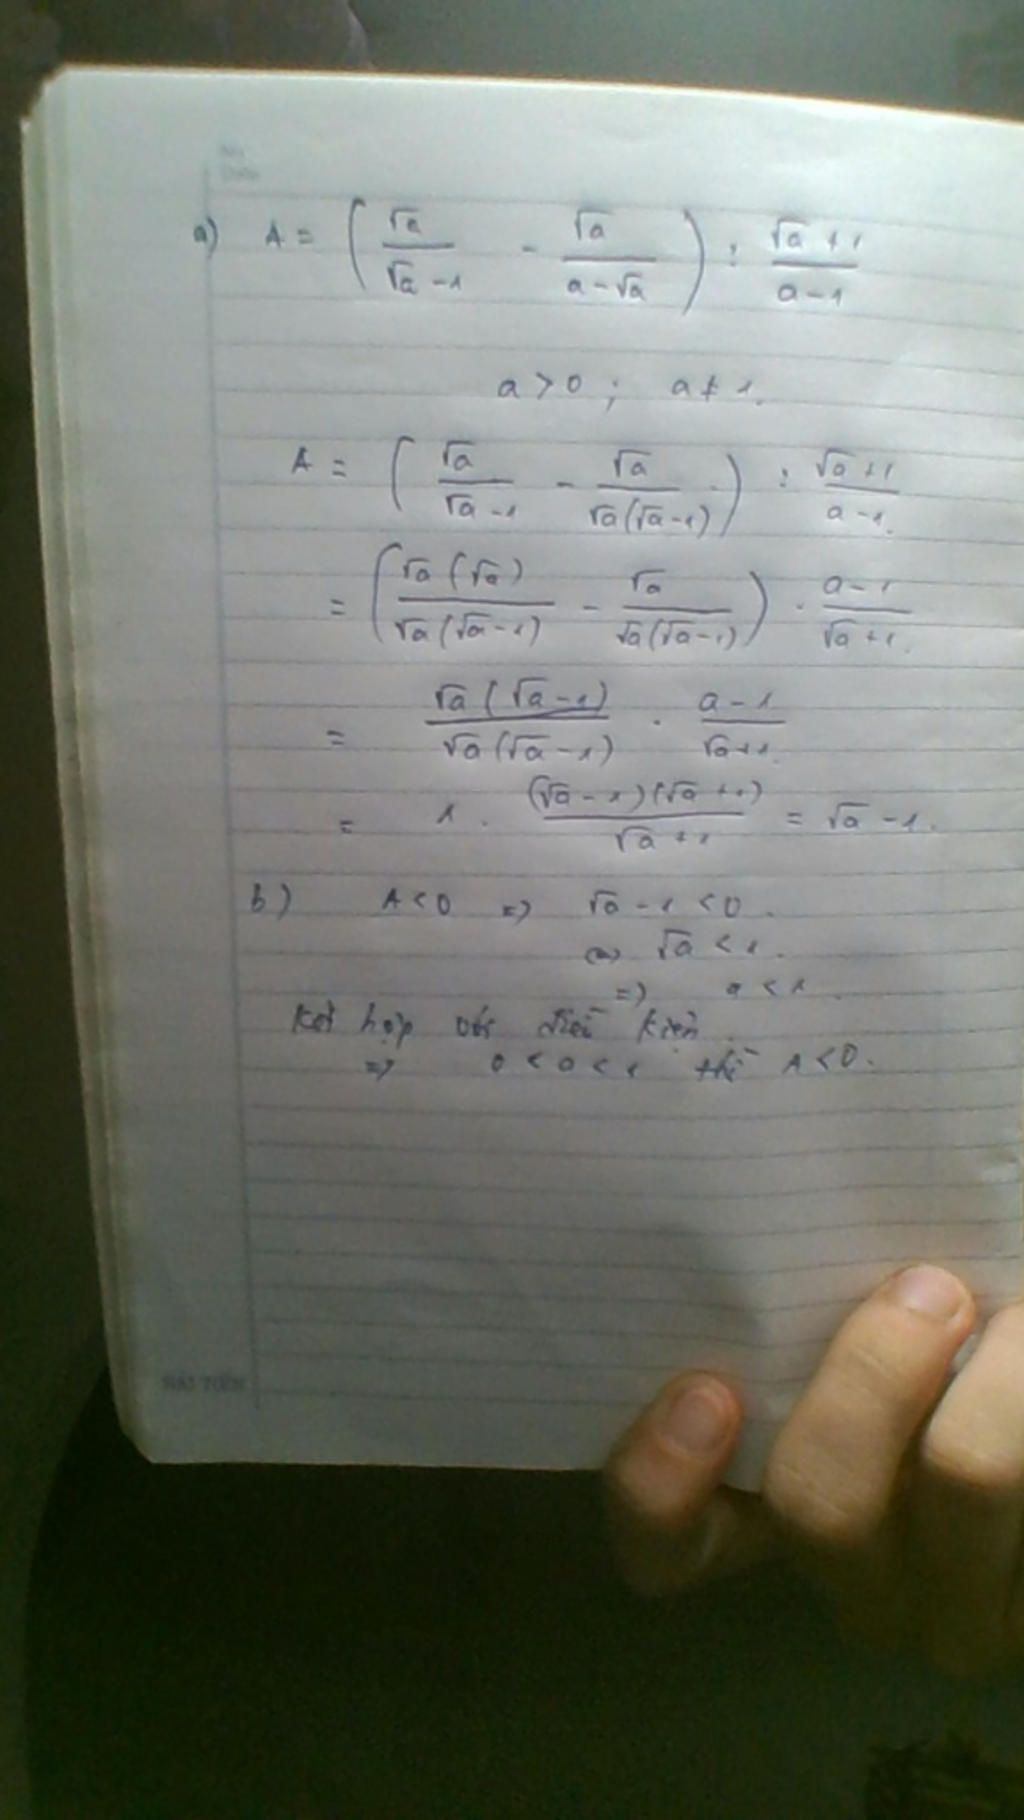 a) A = ( √a / (√a - 1) - √a / (a - √a) ) : (√a + 1) / (a - 1)
a > 0 ; a ≠ 1.
A = ( √a / (√a - 1) - √a / (√a(√a - 1)) ) : (√a + 1) / (a - 1)
= ( √a(√a) / (√a(√a - 1)) - √a / (√a(√a - 1)) ) . (a - 1) / (√a + 1).
= √a(√a - 1) / (√a(√a - 1)) . (a - 1) / (√a + 1).
= 1 . (√a - 1)(√a + 1) / (√a + 1) = √a - 1.
b) A < 0 => √a - 1 < 0.
<=> √a < 1.
=> a < 1.
Kết hợp với điều kiện.
=> 0 < a < 1 thì A < 0.
HẢI TIẾN